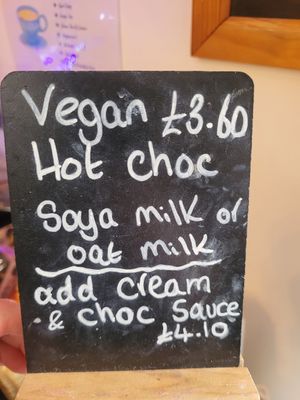 Vegan £3.60
Hot choc
Soya milk or
oat milk
add cream
& choc Sauce
£4.10